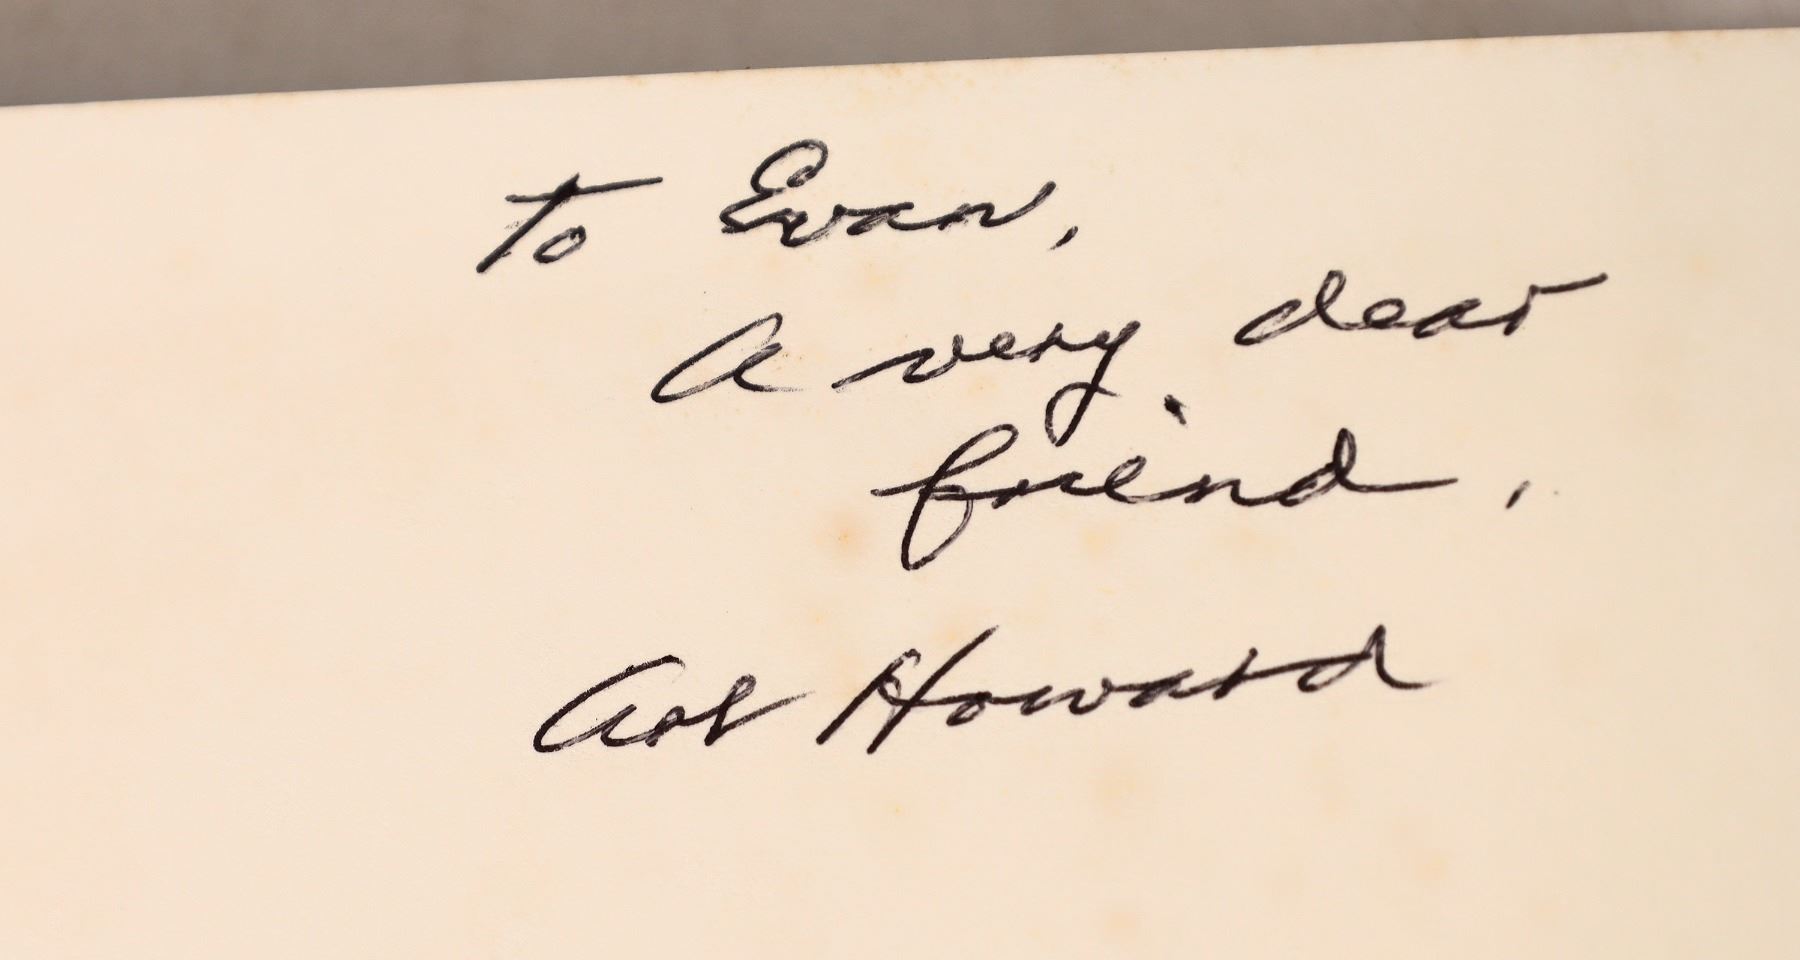 to Evan,
A very dear
friend.
Howard